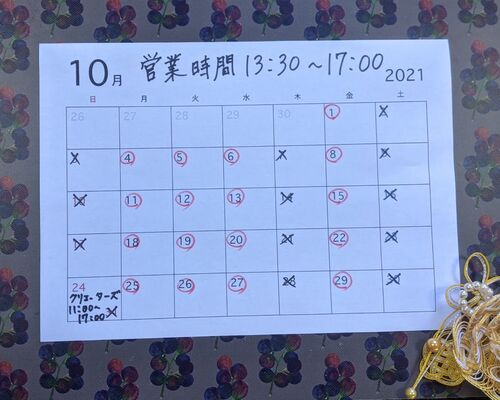 10月 営業時間 13:30～17:00 2021
日 月 火 水 木 金 土
26 27 28 29 30 1
4 5 6 8
11 12 13 15
18 19 20 22
24 25 26 27 29
クリエーターズ
11:00～
17:00